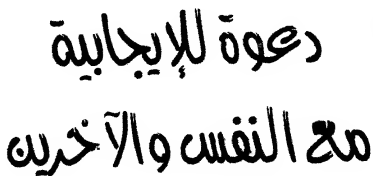 دعوة للإيجابية
مع النفس والآخرين